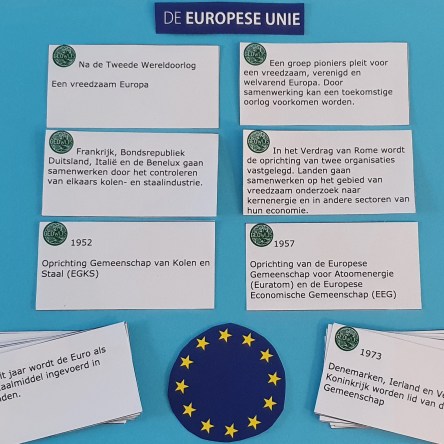 DE EUROPESE UNIE
Na de Tweede Wereldoorlog
Een vreedzaam Europa
Een groep pioniers pleit voor
een vreedzaam, verenigd en
welvarend Europa. Door
samenwerking kan een toekomstige
oorlog voorkomen worden.
Frankrijk, Bondsrepubliek
Duitsland, Italië en de Benelux gaan
samenwerken door het controleren
van elkaars kolen- en staalindustrie.
In het Verdrag van Rome wordt
de oprichting van twee organisaties
vastgelegd. Landen gaan
samenwerken op het gebied van
vreedzaam onderzoek naar
kernenergie en in andere sectoren van
hun economie.
1952
Oprichting Gemeenschap van Kolen en
Staal (EGKS)
1957
Oprichting van de Europese
Gemeenschap voor Atoomenergie
(Euratom) en de Europese
Economische Gemeenschap (EEG)
jaar wordt de Euro als
ingevoerd in
1973
Denemarken, Ierland en
Koninkrijk worden lid van
Gemeenschap